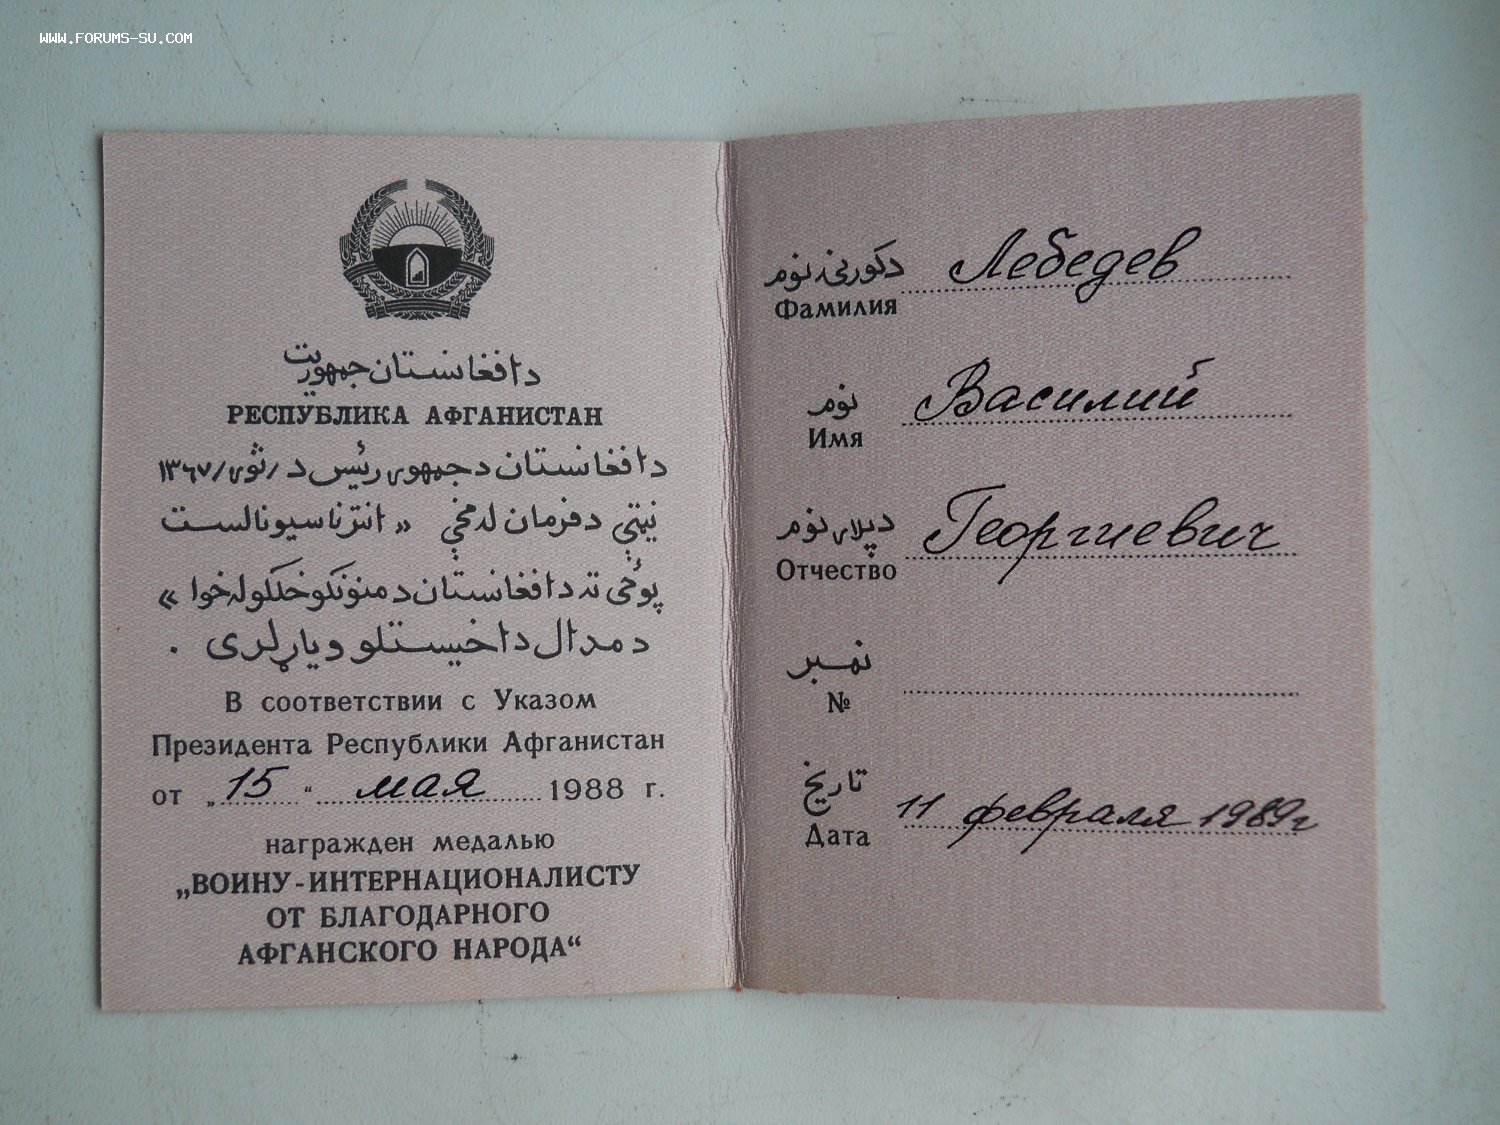 WWW.FORUMS-SU.COM
دافغانستان جمهوریت
РЕСПУБЛИКА АФГАНИСТАН
دافغانستان دجمهوری رئیس د /ثور/ ۱۳۶۷
نیټې دفرمان له مخې « انترناسیونالست
پوځی ته دافغانستان دمنونکوخلکولخوا »
دمدال داخیستلو ویاړلری .
В соответствии с Указом
Президента Республики Афганистан
от „15“ мая 1988 г.
награжден медалью
„ВОИНУ-ИНТЕРНАЦИОНАЛИСТУ
ОТ БЛАГОДАРНОГО
АФГАНСКОГО НАРОДА“
دکورنی نوم Лебедев
Фамилия
نوم Василий
Имя
دپلار نوم Георгиевич
Отчество
نمبر
№
تاریخ 11 февраля 1989г
Дата